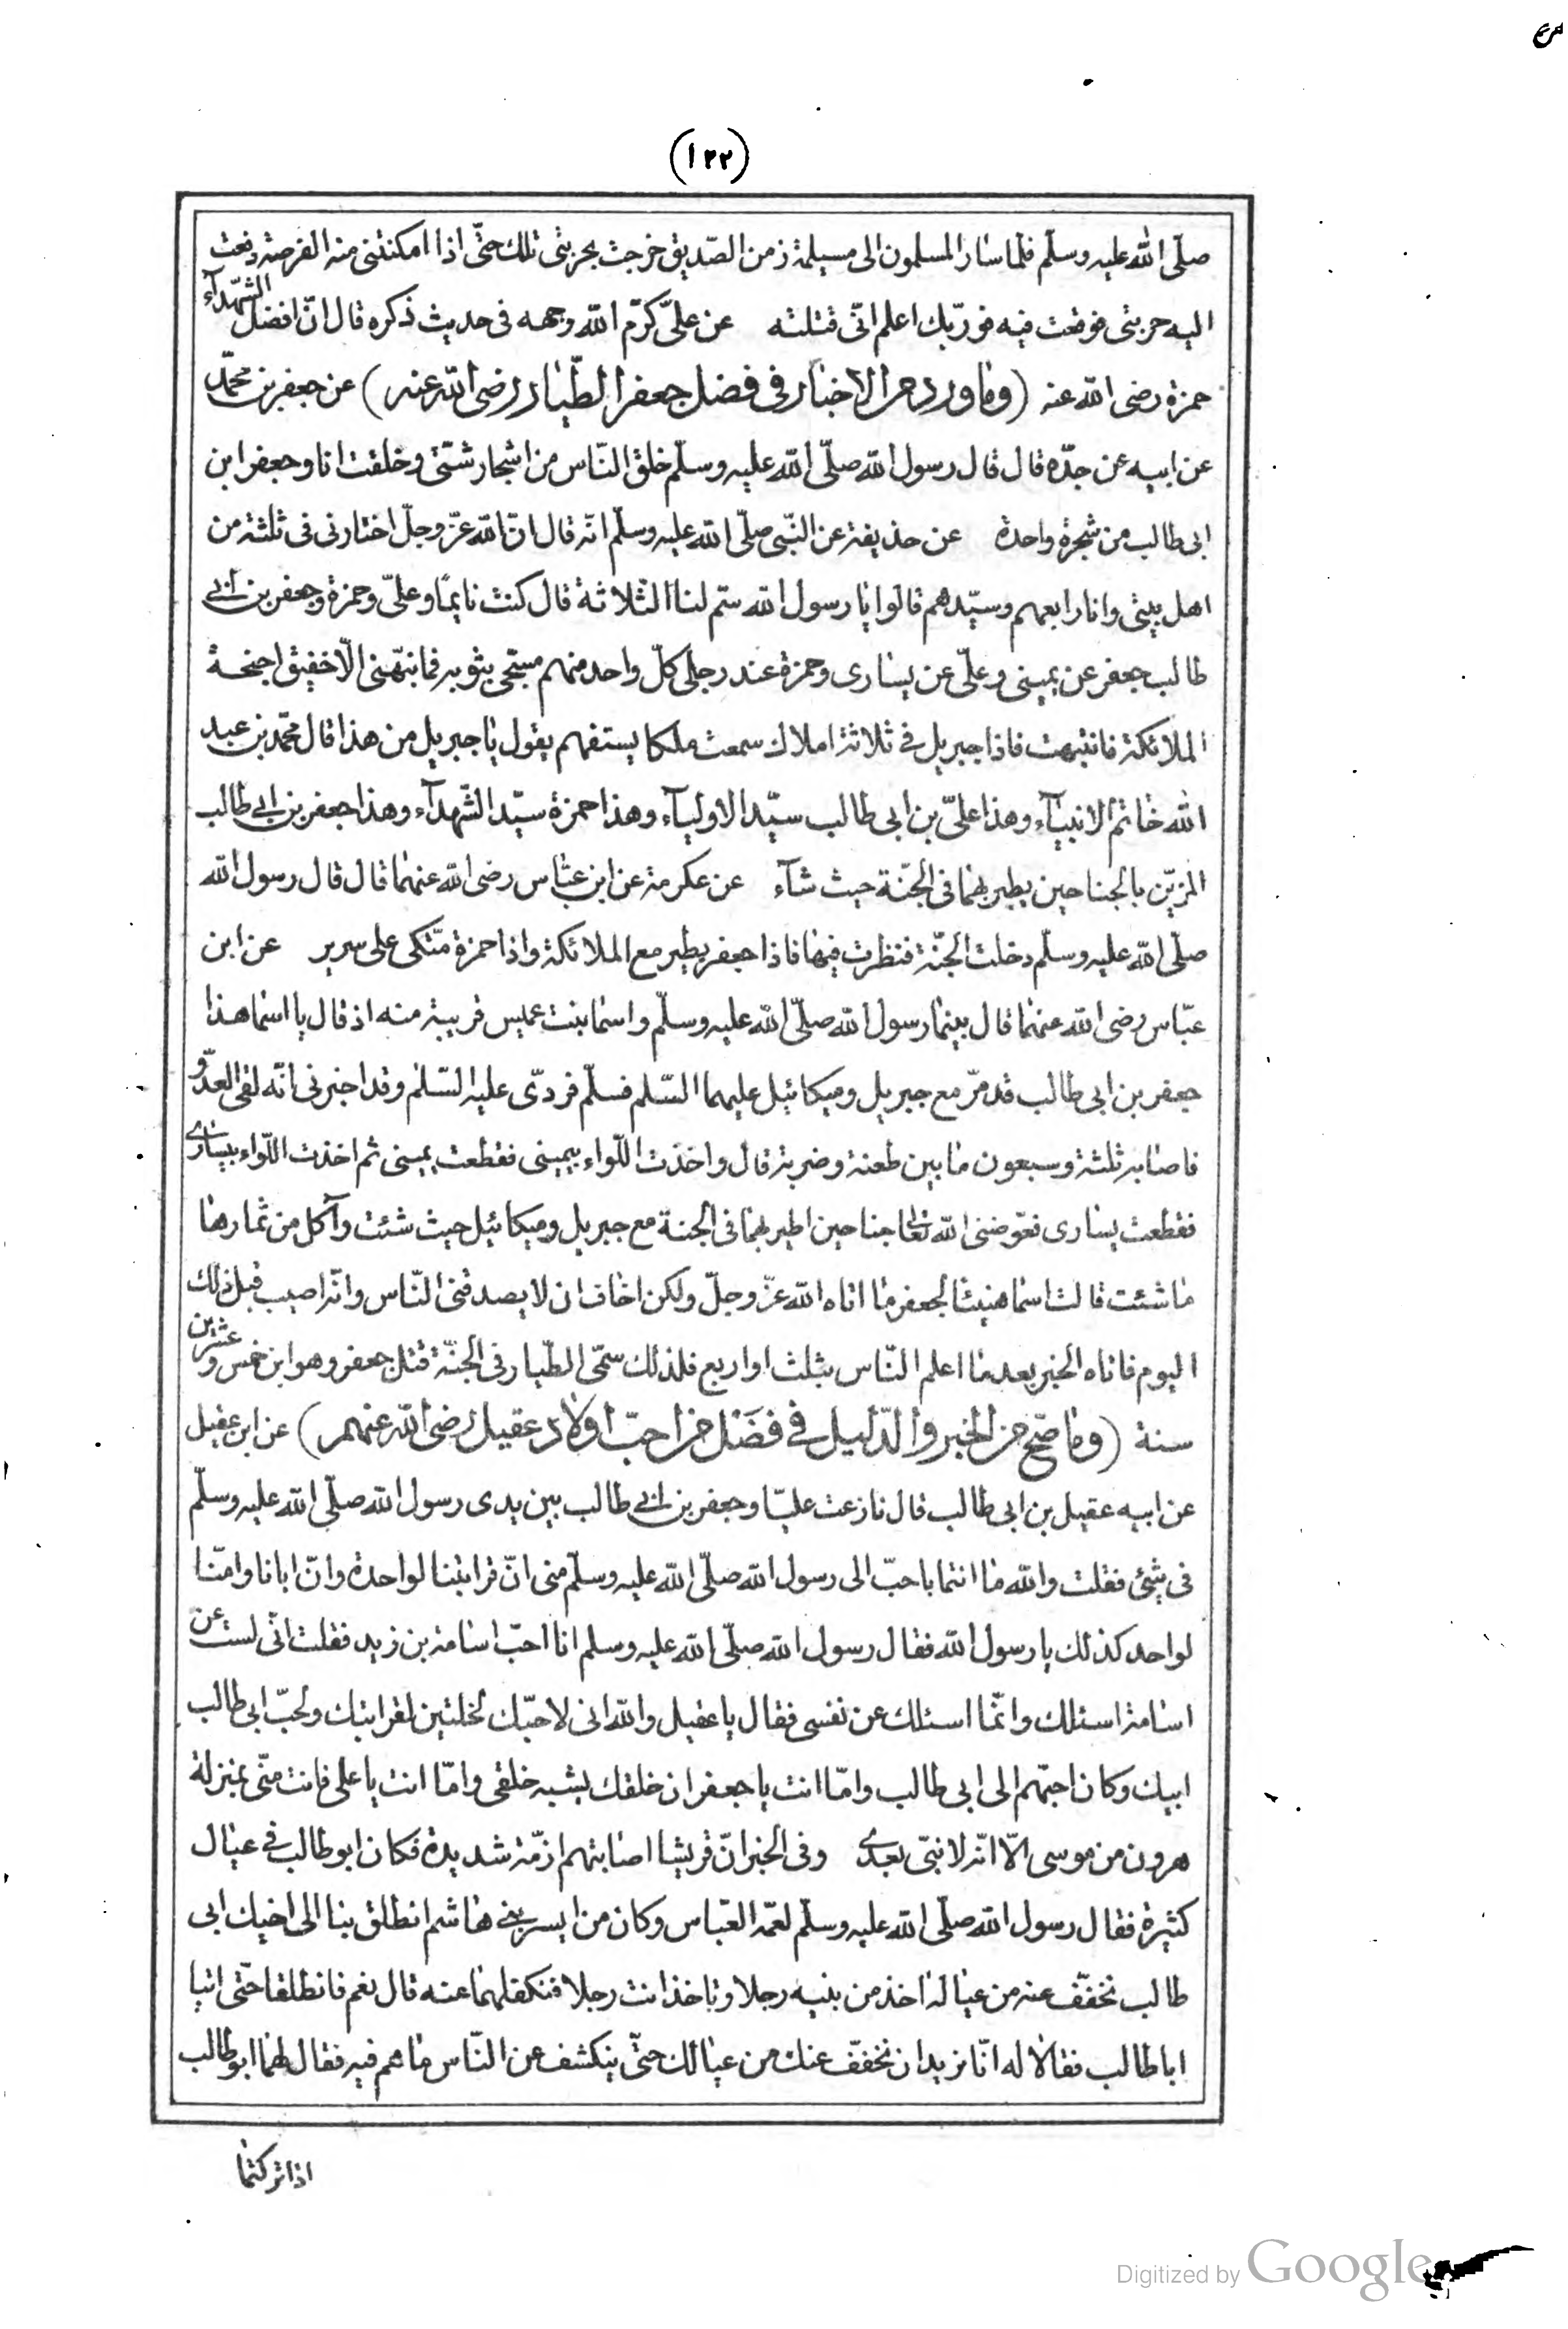 (١٢٢)
صلّى الله عليه وسلّم فلما سار المسلمون الى مسيلمة زمن الصّديق خرجت بحربتى تلك حتّى اذا امكنتنى منه الفرصة دفعت
اليه حربتى فوقعت فيه فوربّك اعلم انّى قتلته عن علىّ كرّم الله وجهه فى حديث ذكره قال انّ افضل الشّهدآء
حمزة رضى الله عنه (وما ورد من الاخبار فى فضل جعفر الطّيار رضى الله عنه) عن جعفر بن محمّد
عن ابيه عن جدّه قال قال رسول الله صلّى الله عليه وسلّم خلق النّاس من اشجار شتّى وخلقت انا وجعفر ابن
ابى طالب من شجرة واحدة عن حذيفة عن النّبى صلّى الله عليه وسلّم انّه قال انّ الله عزّ وجلّ اختارنى فى ثلثة من
اهل بيتى وانا رابعهم وسيّدهم قالوا يا رسول الله سمّ لنا الثلاثة قال كنت نايمًا وعلىّ وحمزة وجعفر بن ابى
طالب جعفر عن يمينى وعلىّ عن يسارى وحمزة عند رجلى كلّ واحد منهم مسجّى بثوبه فما نبّهنى الّا خفيق اجنحة
الملائكة فانتبهت فاذا جبريل فى ثلاثة املاك سمعت ملكا يستفهم يقول يا جبريل من هذا قال محمّد بن عبد
الله خاتم الانبيآء وهذا علىّ بن ابى طالب سيّد الاوليآء وهذا حمزة سيّد الشّهدآء وهذا جعفر بن ابى طالب
المزيّن بالجناحين يطير بهما فى الجنّة حيث شآء عن عكرمة عن ابن عبّاس رضى الله عنهما قال قال رسول الله
صلّى الله عليه وسلّم دخلت الجنّة فنظرت فيها فاذا جعفر يطير مع الملائكة واذا حمزة متّكى على سرير عن ابن
عبّاس رضى الله عنهما قال بينما رسول الله صلّى الله عليه وسلّم واسما بنت عميس قريبة منه اذ قال يا اسما هذا
جعفر بن ابى طالب قد مرّ مع جبريل وميكائيل عليهما السّلم فسلّم فردّى عليه السّلم وقد اخبرنى انّه لقى العدوّ
فاصابه ثلثة وسبعون ما بين طعنة وضربة قال واخذت اللّواء بيمينى فقطعت يمينى ثم اخذت اللّواء بيسارى
فقطعت يسارى فعوّضنى الله تعالى جناحين اطير بهما فى الجنة مع جبريل وميكائيل حيث شئت وآكل من ثمارها
ما شئت قالت اسما هنيئا لجعفر ما اتاه الله عزّ وجلّ ولكن اخاف ان لا يصدقنى النّاس وانّه اصيب قبل ذلك
اليوم فاتاه الخبر بعد ما اعلم النّاس بثلث او اربع فلذلك سمّى الطّيار فى الجنّة قتل جعفر وهو ابن خمس وعشرين
سنة (وما صحّ من الخبر والدّليل فى فضل من احبّ اولاد عقيل رضى الله عنهم) عن ابن عقيل
عن ابيه عقيل بن ابى طالب قال نازعت عليّا وجعفر بن ابى طالب بين يدى رسول الله صلّى الله عليه وسلّم
فى شئ فقلت والله ما انتما باحبّ الى رسول الله صلّى الله عليه وسلّم منى انّ قرابتنا لواحدة وانّ ابانا وامّنا
لواحد كذلك يا رسول الله فقال رسول الله صلّى الله عليه وسلم انا احبّ اسامة بن زيد فقلت انّى لست عن
اسامة اسئلك وانّما اسئلك عن نفسى فقال يا عقيل والله انى لاحبّك لخلتين لقرابتك ولحبّ ابى طالب
ابيك وكان احبّهم الى ابى طالب وامّا انت يا جعفر ان خلقك يشبه خلقى وامّا انت يا على فانت منّى بمنزلة
هرون من موسى الّا انّه لا نبّى بعدى وفى الخبر انّ قريشا اصابتهم ازمّة شديدة فكان ابو طالب فى عيال
كثيرة فقال رسول الله صلّى الله عليه وسلّم لعمّه العبّاس وكان من ايسر بنى هاشم انطلق بنا الى اخيك ابى
طالب نخفّف عنه من عياله اخذ من بنيه رجلا وتاخذ انت رجلا فنكفلهما عنه قال نعم فانطلقا حتّى اتيا
ابا طالب فقالا له انّا نريد ان نخفّف عنك من عيالك حتّى ينكشف عن النّاس ما هم فيه فقال لهما ابو طالب
اذا تركتما
Digitized by Google